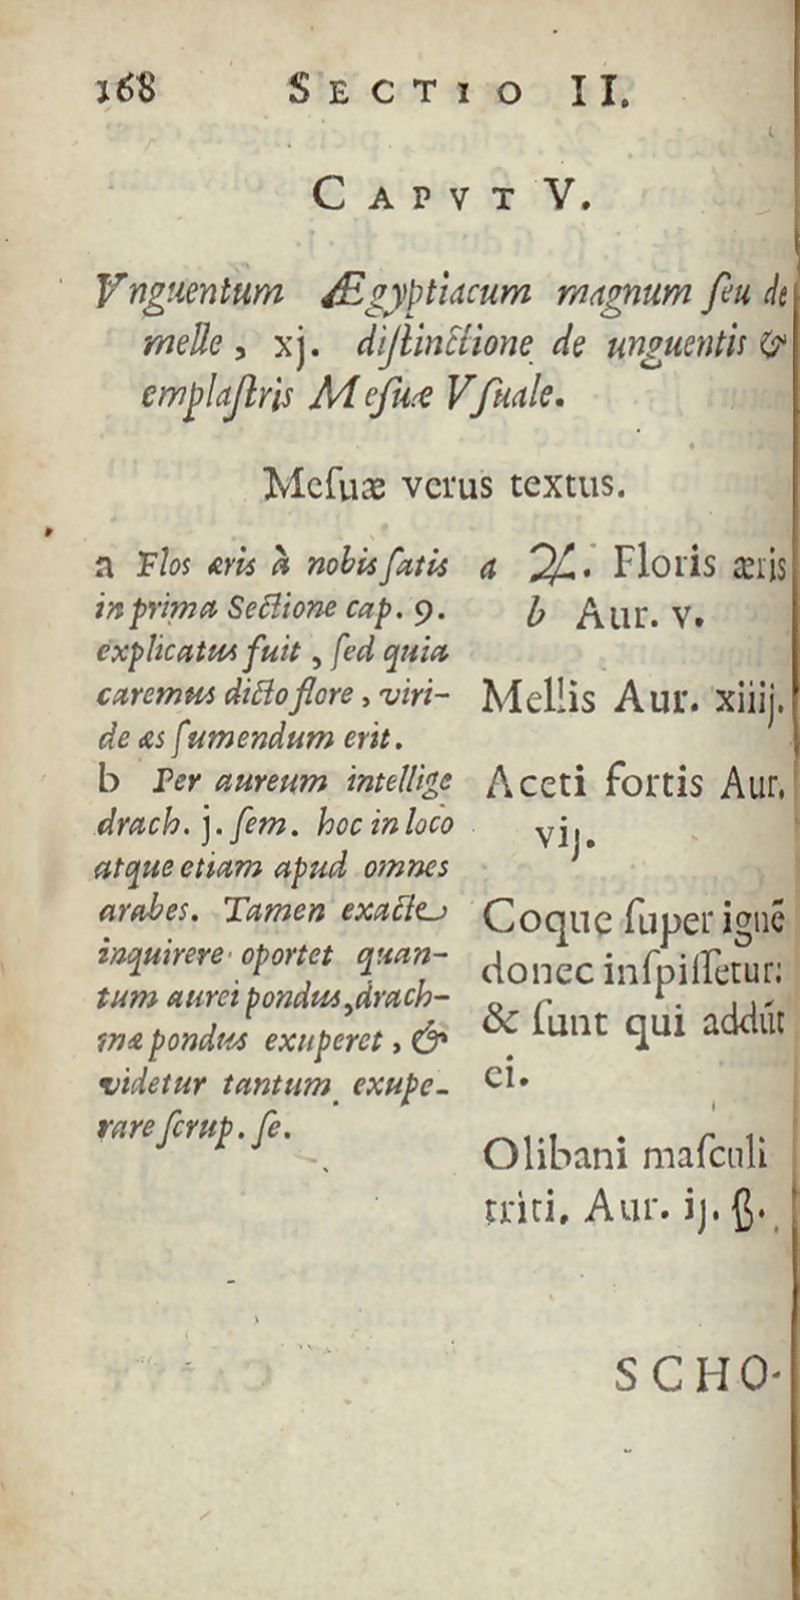 168 SECTIO II.
CAPVT V.
Vnguentum Ægyptiacum magnum ſeu de
melle, xj. diſtinctione de unguentis &
emplaſtris Meſuæ Vſuale.
Meſuæ verus textus.
a Flos æris à nobis ſatis
in prima Sectione cap. 9.
explicatus fuit, ſed quia
caremus dicto flore, viri-
de æs ſumendum erit.
b Per aureum intellige
drach. j. ſem. hoc in loco
atque etiam apud omnes
arabes. Tamen exacte
inquirere oportet quan-
tum aurei pondus, drach-
mæ pondus exuperet, &
videtur tantum exupe-
rare ſcrup. ſe.
a ℞. Floris æris
b Aur. v.
Mellis Aur. xiiij.
Aceti fortis Aur.
vij.
Coque ſuper ignē
donec inſpiſſetur:
& ſunt qui addūt
ei.
Olibani maſculi
triti. Aur. ij. ß.
SCHO-